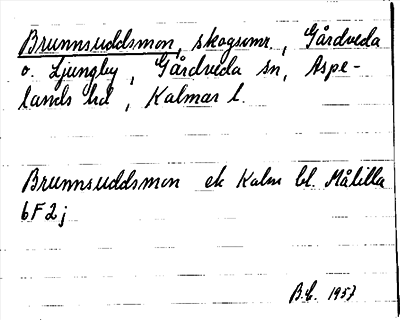 Brunnsuddsmon, skogsomr., Gårdveda
o. Ljungby, Gårdveda sn, Aspe-
lands hd, Kalmar l.
Brunnsuddsmon ek Kalm bl. Målilla
6F2j
B.E. 1957